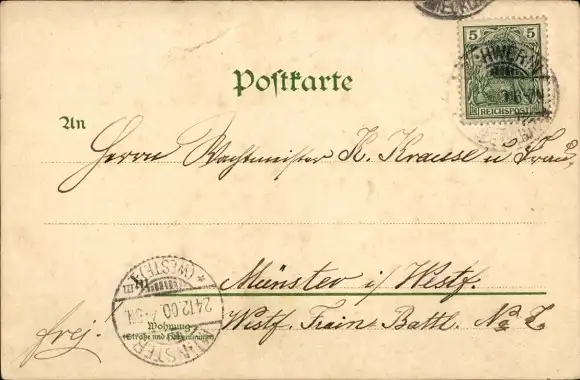 5 5
REICHSPOST
Postkarte
An
Herrn Wachtmeister K. Krausse u Frau,
in Münster i/ Westf.
(WESTF.)
24.12.00
MÜNSTER
Wohnung
(Straße und Hausnummer)
Westf. Train Battl. No 7
frej.